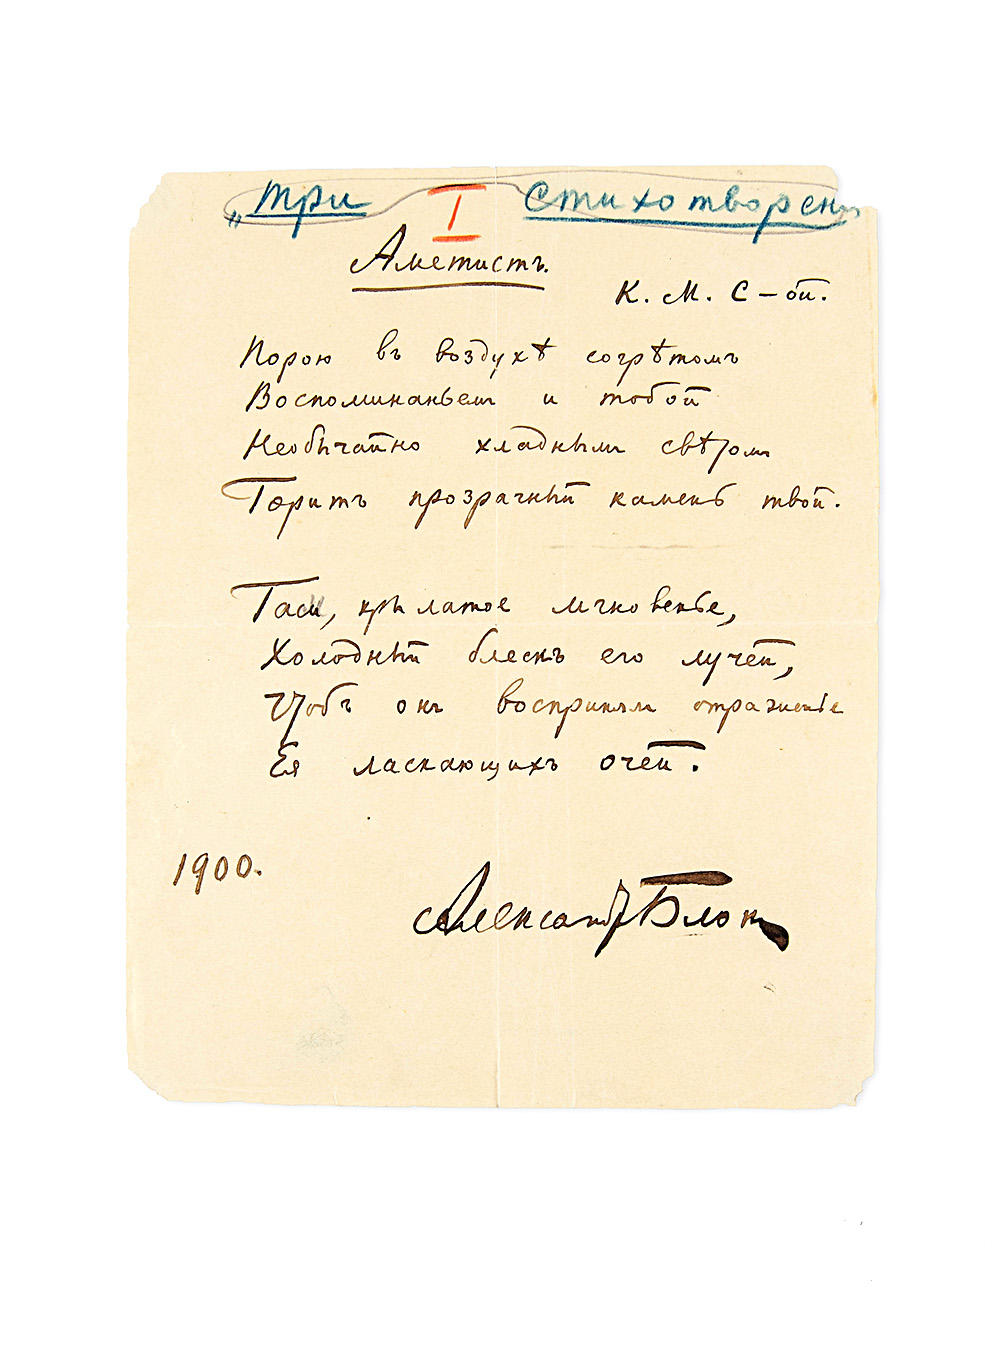 „три I стихотворени
Аметистъ.
К. М. С–ой.
Порою въ воздухѣ согрѣтомъ
Воспоминаньем и тобой
Необычайно хладным свѣтом
Горитъ прозрачный камень твой.
Гаси, крылатое мгновенье,
Холодный блескъ его лучей,
Чтобъ онъ воспринял отраженье
Ея ласкающихъ очей.
1900.
Александр Блок